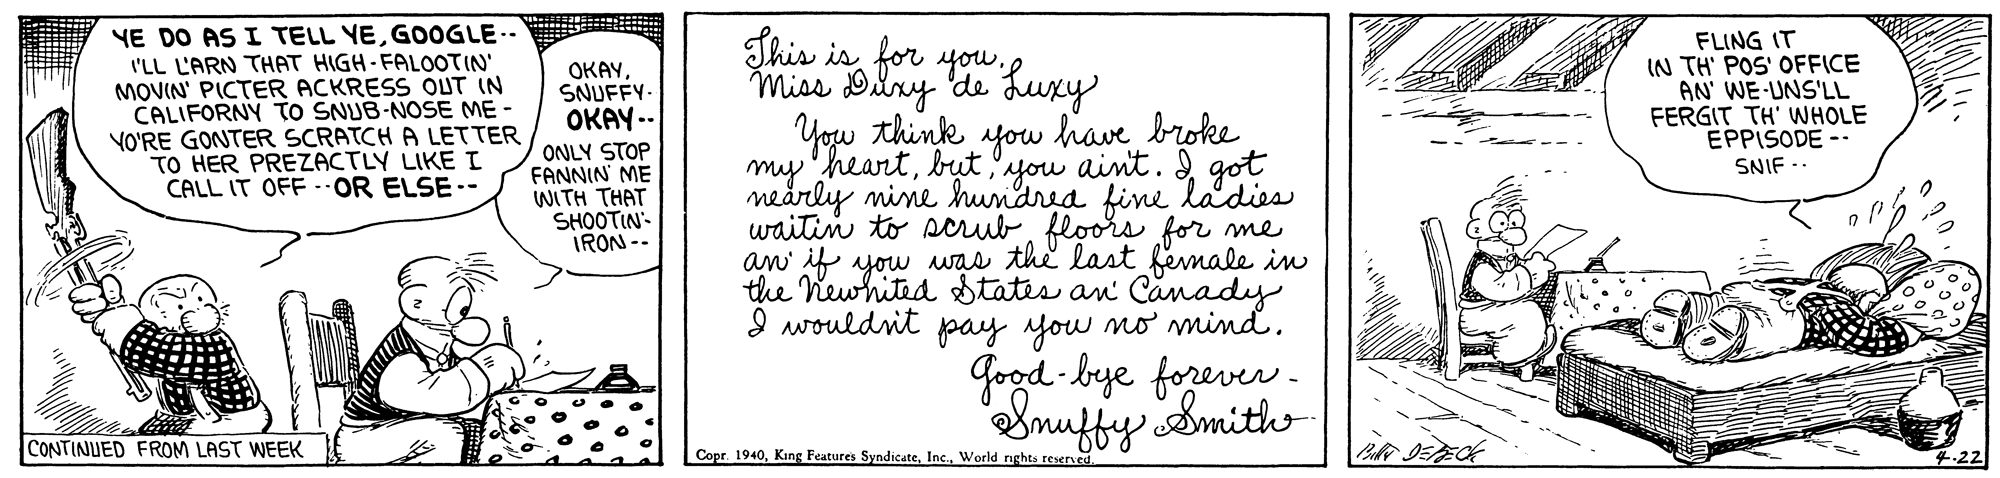 YE DO AS I TELL YE, GOOGLE--
I'LL L'ARN THAT HIGH-FALOOTIN'
MOVIN' PICTER ACKRESS OUT IN
CALIFORNY TO SNUB-NOSE ME-
YO'RE GONTER SCRATCH A LETTER
TO HER PREZACTLY LIKE I
CALL IT OFF--OR ELSE--
OKAY,
SNUFFY-
OKAY--
ONLY STOP
FANNIN' ME
WITH THAT
SHOOTIN'-
IRON--
CONTINUED FROM LAST WEEK
This is for you,
Miss Duxy de Luxy
You think you have broke
my heart, but, you ain't. I got
nearly nine hundred fine ladies
waitin to scrub floors for me
an' if you was the last female in
the Newnited States an' Canady
I wouldn't pay you no mind.
Good-bye forever-
Snuffy Smith
Copr. 1940, King Features Syndicate, Inc., World rights reserved.
FLING IT
IN TH' POS' OFFICE
AN' WE-UNS'LL
FERGIT TH' WHOLE
EPPISODE--
SNIF--
Billy DeBeck
4-22